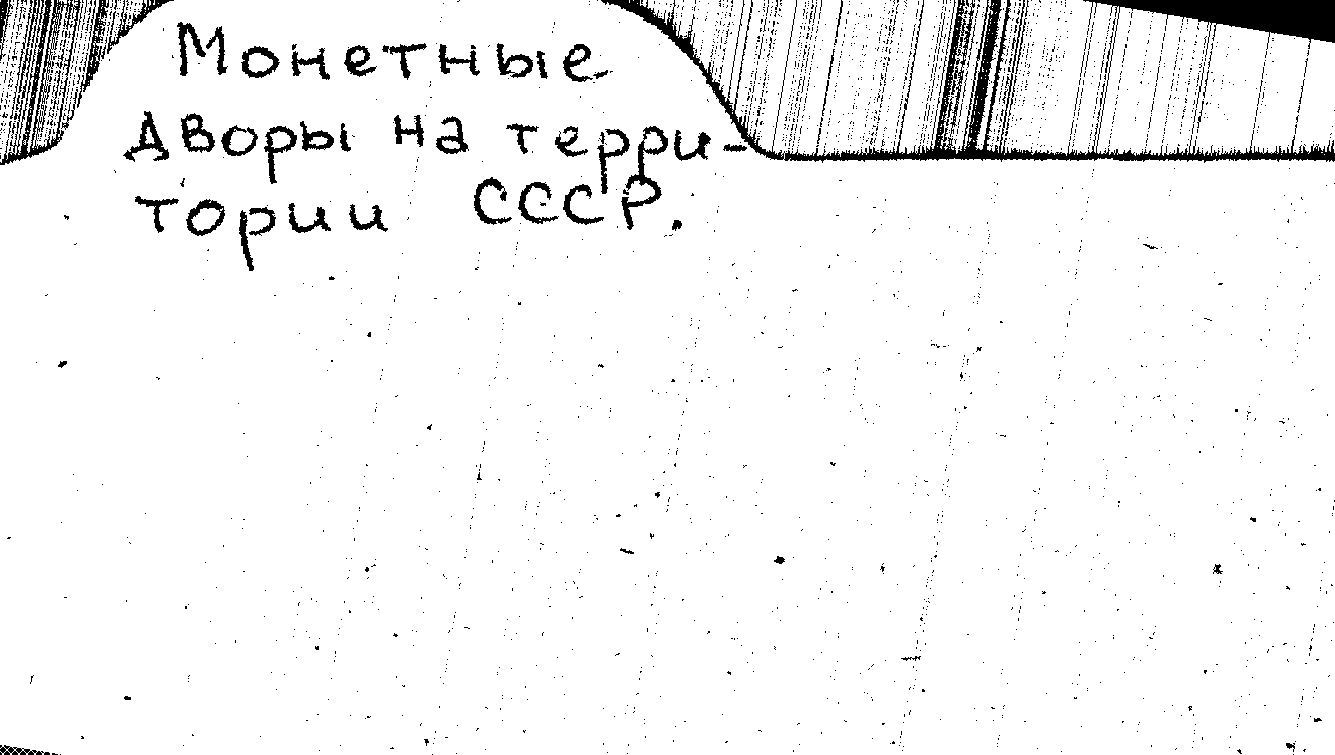 Монетные
дворы на терри-
тории СССР.